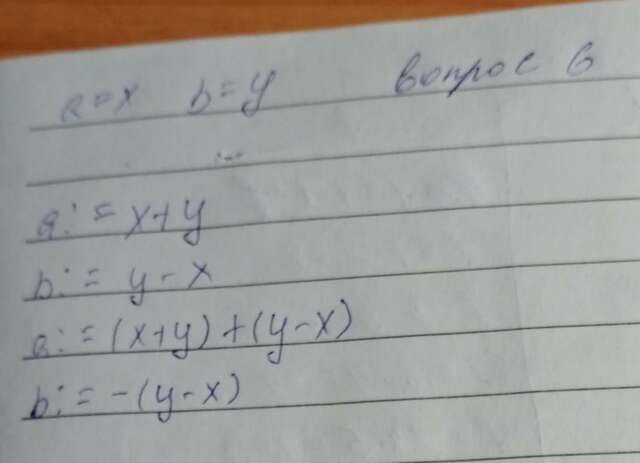 a=x b=y вопрос 6
...
a:=x+y
b:=y-x
a:=(x+y)+(y-x)
b:=-(y-x)